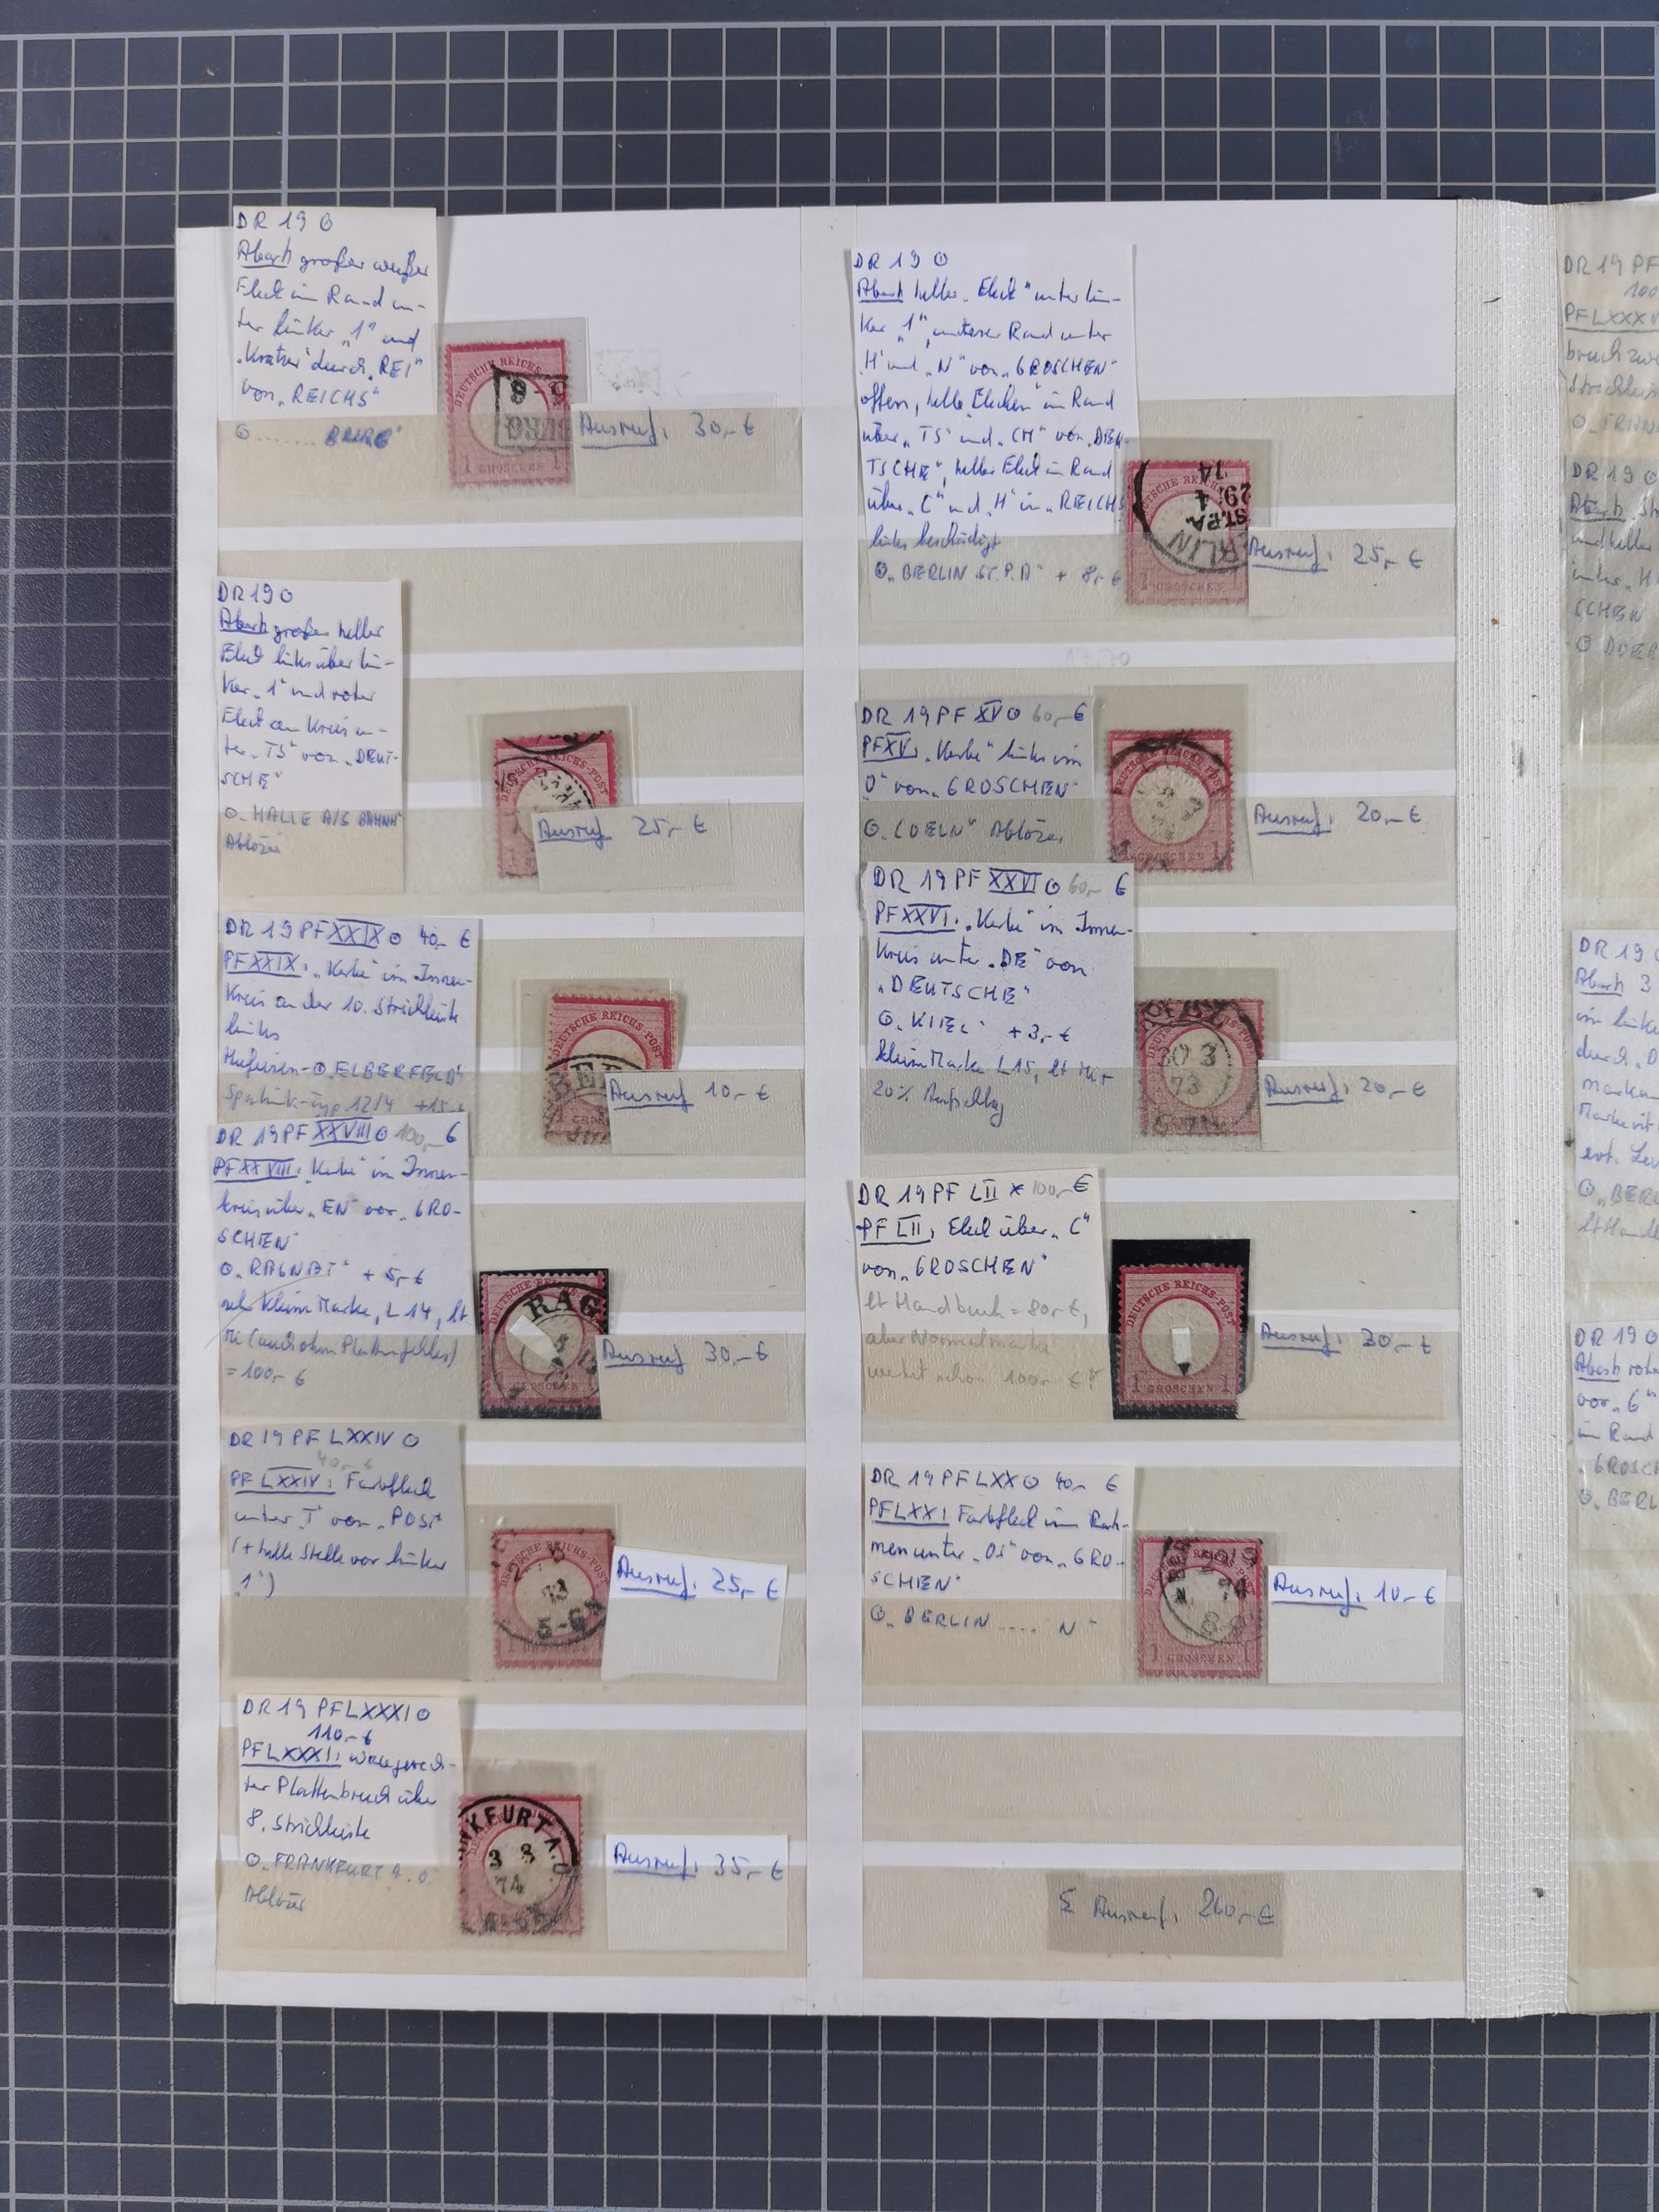 DR 19 ⊙
Abart großer weißer
Fleck im Rand un-
ter linker „1" und
„Kratzer" durch „REI"
von „REICHS"
⊙ ....... BURG"
Ausruf: 30,- €
DEUTSCHE REICHS-
BURG
1 GROSCHEN 1
DR 19 ⊙
Abart großer heller
Fleck links über lin-
ker „1" und roter
Fleck am Kreis un-
ter „TS" von „DEUT-
SCHE"
⊙ „HALLE A/S BAHNH"
Ablöser
DEUTSCHE REICHS-POST
Ausruf 25,- €
DR 19 PF XXIX ⊙ 40,- €
PF XXIX: „Kerbe" im Innen-
kreis an der 10. Strichleiste
links
Hufeisen-⊙ „ELBERFELD"
Spalink-Typ 12/4 +15,-
DEUTSCHE REICHS-POST
Ausruf 10,- €
DR 19 PF XXVIII ⊙ 100,- €
PF XXVIII: „Kerbe" im Innen-
kreis über „EN" von „GRO-
SCHEN"
⊙ „RAGNIT" + 5,- €
sehr kleine Marke, L 14, lt
Mi (auch ohne Plattenfehler)
= 100,- €
RAG
GROSCHEN 1
Ausruf 30,- €
DR 19 PF LXXIV ⊙
40,- €
PF LXXIV: Farbfleck
unter „T" von „POST"
(+ helle Stelle vor linker
„1")
73
5-6 N
Ausruf: 25,- €
DR 19 PF LXXXI ⊙
110,- €
PF LXXXI: waagerech-
ter Plattenbruch über
8. Strichleiste
⊙ „FRANKFURT A. O."
Ablöser
NKFURT A. O.
3 8
74
Ausruf: 35,- €
DR 19 ⊙
Abart heller „Fleck" unter lin-
ker „1", unterer Rand unter
„H" und „N" von „GROSCHEN"
offen, helle Flecken im Rand
über „TS" und „CH" von „DEU-
TSCHE", heller Fleck im Rand
über „C" und „H" in „REICHS
links beschädigt
⊙ „BERLIN ST.P.A" + 8,- €
74
29 4
ST.P.A.
ERLIN
1 GROSCHEN 1
Ausruf: 25,- €
DR 19 PF XV ⊙ 60,- €
PF XV: „Kerbe" links im
„O" von „GROSCHEN"
⊙ „COELN" Ablöser
Ausruf: 20,- €
DR 19 PF XXVI ⊙ 60,- €
PF XXVI: „Kerbe" im Innen-
kreis unter „DE" von
„DEUTSCHE"
⊙ „KIEL" + 3,- €
kleine Marke L 15, lt Mi +
20% Aufschlag
30 3
73
Ausruf: 20,- €
DR 19 PF LII * 100,- €
PF LII: Fleck über „C"
von „GROSCHEN"
lt Handbuch = 80,- €,
aber Normalmarke
wertet schon 100,- € !
DEUTSCHE REICHS-POST
1 GROSCHEN 1
Ausruf: 30,- €
DR 19 PF LXX ⊙ 40,- €
PF LXX: Farbfleck im Rah-
men unter „OS" von „GRO-
SCHEN"
⊙ „BERLIN .... N"
1 GROSCHEN 1
Ausruf: 10,- €
Σ Ausruf: 260,- €
DR 19 PF
100
PF LXXXV
DR 19 ⊙
Abart
SCHEN
DR 19
Abart 3
⊙ „BERL
DR 19 ⊙
Abart rote
von „G"
im Rand
„GROSCH
⊙ „BERL